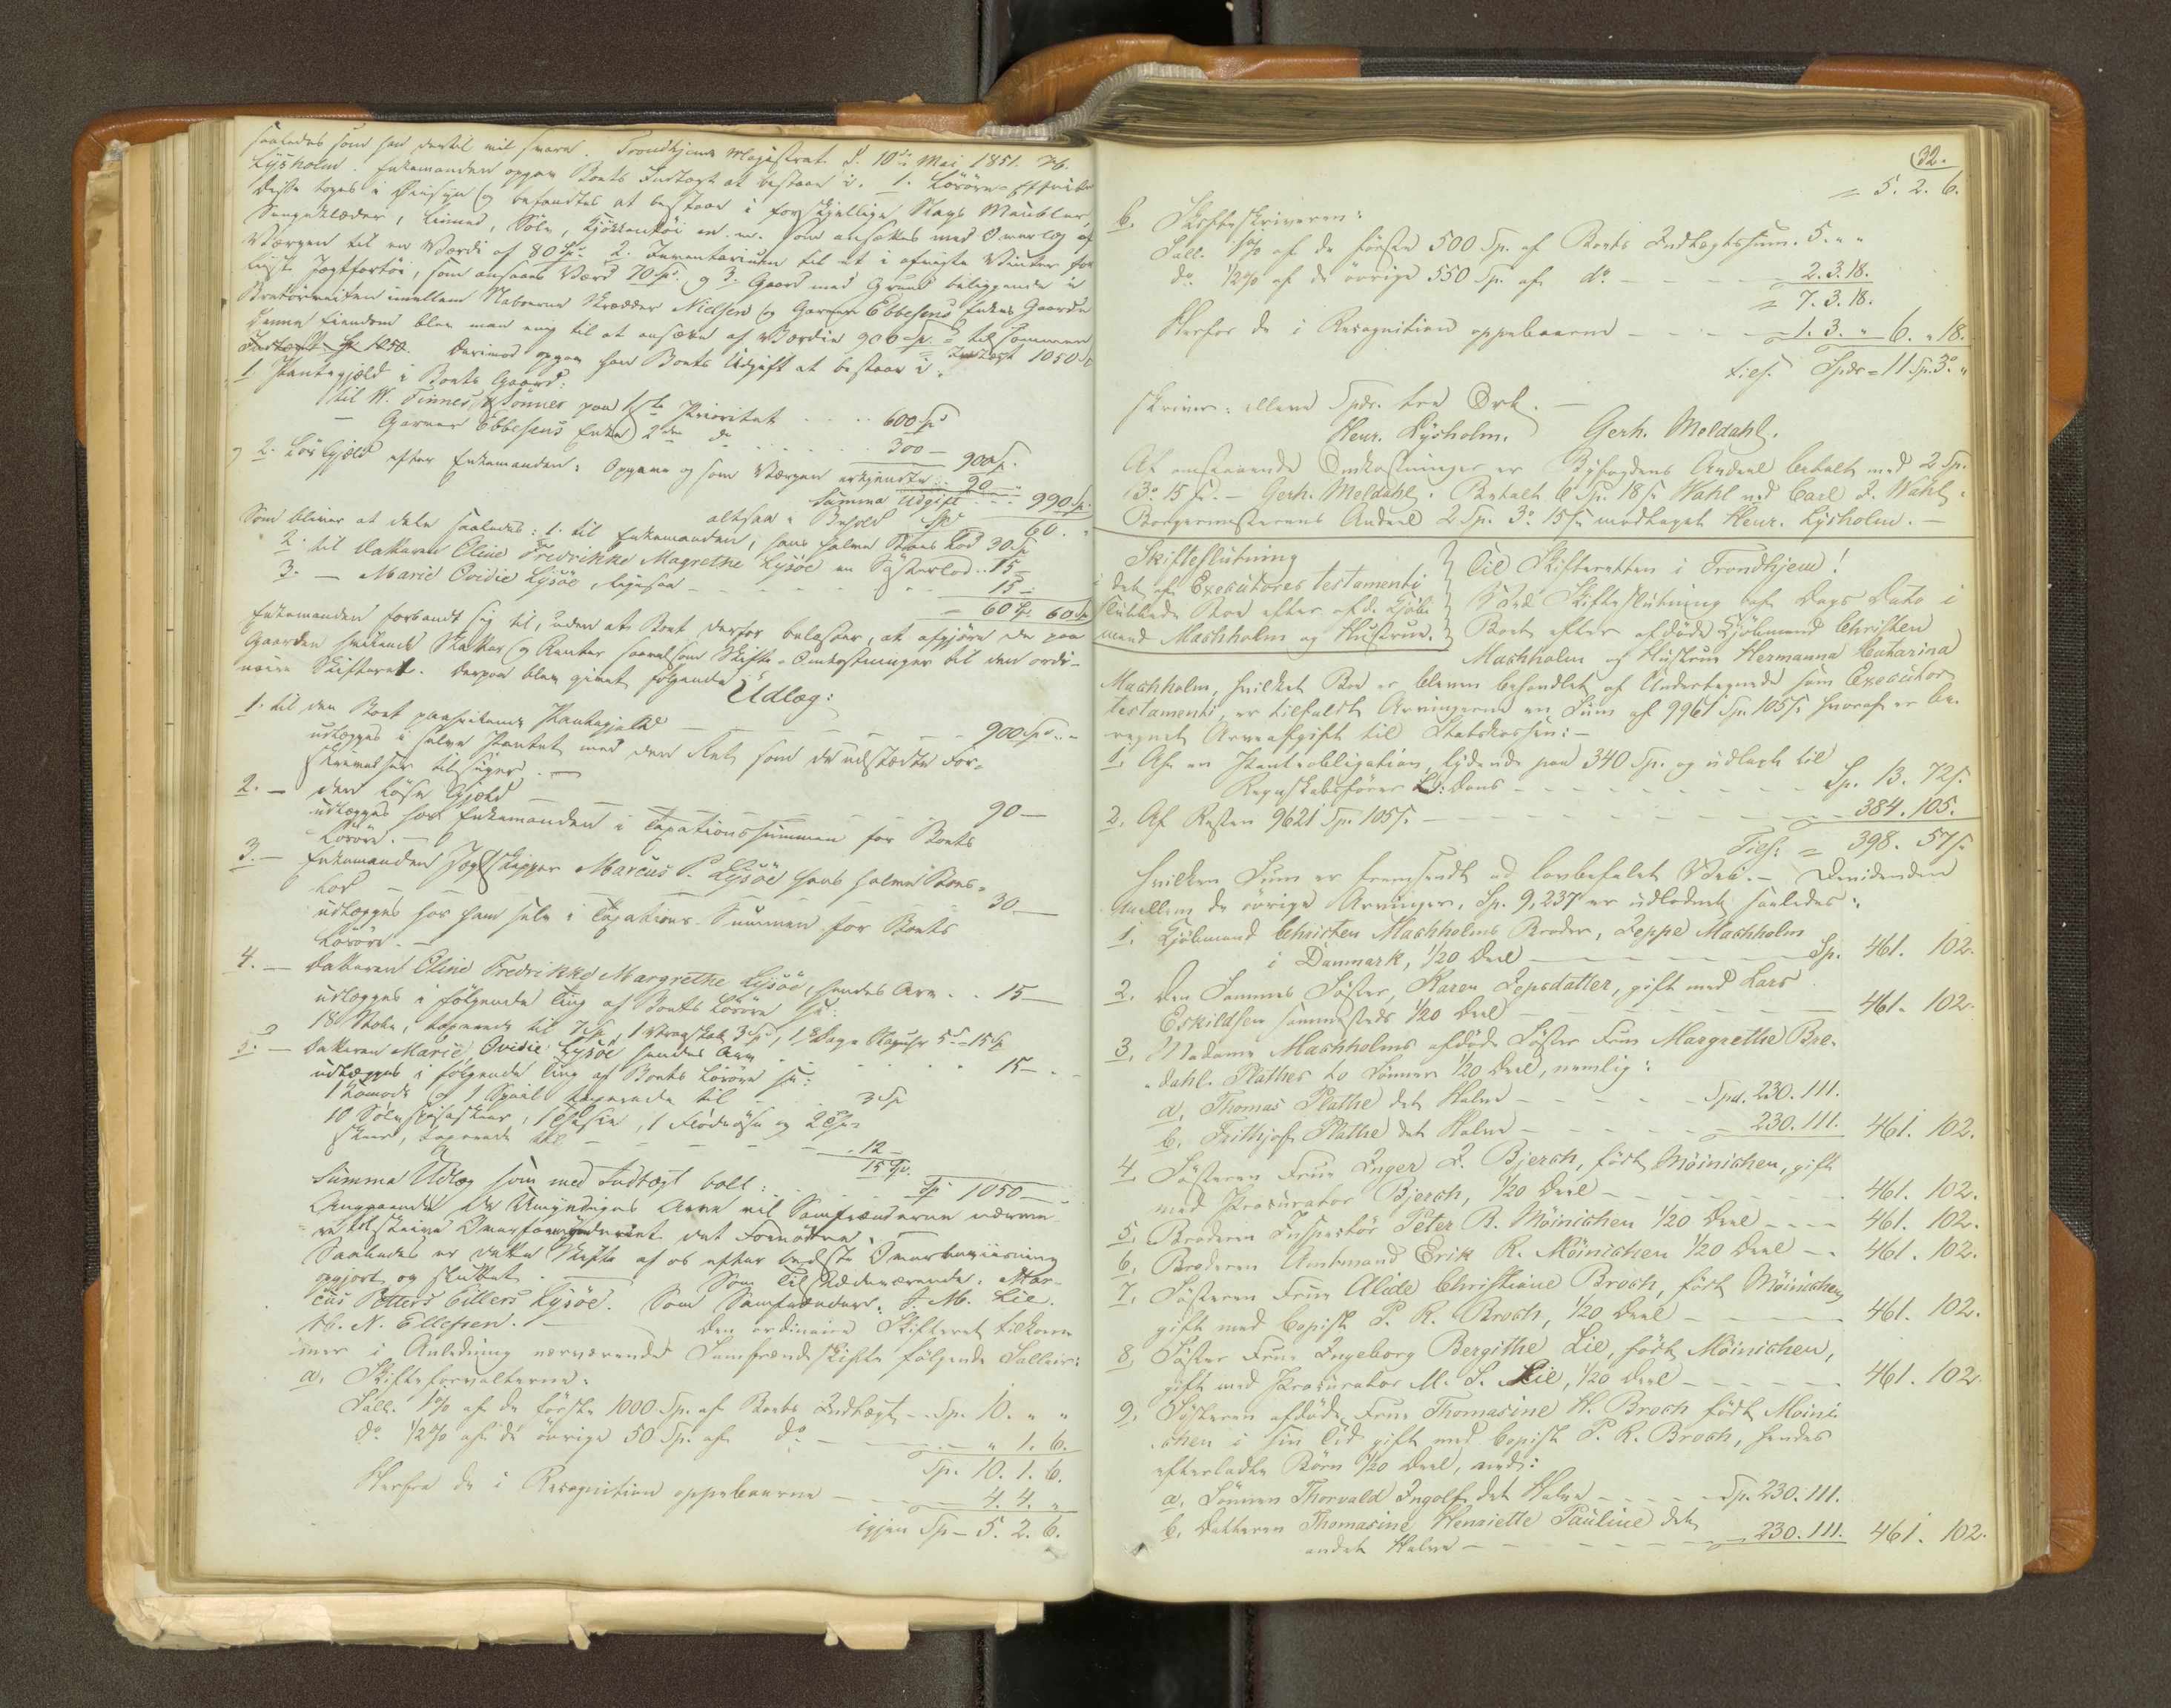 saaledes som han dertil vil svare. Trondhjems Magistrat d. 10de Mai 1851.
Lysholm. Enkemanden opgav Boets Indtægt at bestaae i. 1. Løsøre-Effecter
Disse toges i Øiesyn og befandtes at bestaae i forskjellige Slags Meubler,
Sengeklæder, Linned, Sølv, Kjøkkentøi m. m. som ansættes med Overlæg af
Værgen til en Værdi af 80 Sp. 2. Inventarium til et i afvigte Vinter
Jagtfartøi, som ansaaes værd 70 Sp. og 3. Gaard med Grund beliggende i
imellem Naboerne Skrædder Nielsen og Garver Ebbesens Enkes Gaarde
Denne Eiendom blev man enig til at ansætte af Værdie 900 Sp. = tilsammen
Indtægt Sp. 1050. Derimod opgav han Boets Udgift at bestaae i: Indtægt 1050 Sp
1. Pantegjæld i Boets Gaard:
til W. Finnes Sønner paa 1ste Prioritet 600 Sp
— Garver Ebbesens Enke 2den do 300 — 900 Sp.
og 2. Løs Gjæld efter Enkemandens Opgave og som Værgen erkjendte 90
Summa Udgift 990 Sp.
altsaa i Behold Sp 60. "
Som bliver at dele saaledes: 1. til Enkemanden, hans halve Boes Lod 30 Sp
2. til Datteren Oline Fredrikke Magrethe Lysöe en Søsterlod 15 —
3. — Marie Ovidie Lysöe, ligesaa 15 —
= 60 Sp. 60 Sp
Enkemanden forbandt sig til, uden at Boet derfor belastes, at afgjøre de paa
Gaarden heftende Skatter og Renter saavelsom Skifte-Omkostninger til den ordi-
naire Skifteret. Derpaa blev givet følgende
Udlæg:
1. til den Boet paahvilende Pantegjæld 900 Sp. "
udlægges i selve Pantet med den Ret som de udstædte For-
skrivelser tilsiger. —
2. — den løse Gjæld 90 —
udlægges hos Enkemanden i Taxationssummen for Boets
Løsøre. —
3. — Enkemanden Jagtskipper Marcus P. Lysöe hans halve Boes-
Lod 30 —
udlægges hos ham selv i Taxations-Summen for Boets
Løsøre. —
4. — Datteren Oline Fredrikke Margrethe Lysöe, hendes Arv 15 —
udlægges i følgende Ting af Boets Løsøre
18 Stole, taxerede til 7 Sp, 1 3 Sp, 1 5 Sp = 15 Sp
5. — Datteren Marie Ovidie Lysöe hendes Arv 15 —
udlægges i følgende Ting af Boets Løsøre
1 Komode og 1 Speil taxerede til 3 Sp
10 Sølv Spiseskeer, 1 Theskee, 1 Flødeøse og 2 The-
skeer, taxerede til 12 —
15 Sp.
Summa Udlæg som med Indtægt balt: Sp 1050 —
Angaaende de Umyndiges Arv vil Samfrænderne nærme-
re tilskrive Overformynderiet det Fornødne. —
Saaledes er dette Skifte af os efter bedste Overbeviisning
opgjort og sluttet. — Som Tilstædeværende: Mar-
cus Petters Eillers Lysöe. Som Samfrænder: J. M. Lie.
N. Ellefsen. — Den ordinaire Skifteret tilkom-
mer i Anledning nærværende Samfrændeskifte følgende Sallair:
a, Skifteforvalterne:
Sall. 1% af de første 1000 Sp. af Boets Indtægt - Sp. 10. " "
do ½% af de øvrige 50 Sp. af do — " 1. 6.
Sp. 10. 1. 6.
Herfra de i Recognition oppebaarne — 4. 4. "
igjen Sp - 5. 2. 6.
32.
= 5. 2. 6.
b. Skifteskriveren:
Sall. 1% af de første 500 Sp. af Boets Indtægtssum. 5. " "
do. ½% af de øvrige 550 Sp. af do. — 2. 3. 18.
= 7. 3. 18.
Herfor de i Recognition oppebaarne — 1. 3. " 6. " 18.
tils. Spdr = 11 Sp. 3o. "
skriver: elleve Spdr. tre Ort. —
Henr. Lysholm. Gerh. Meldahl.
Af omstaaende Omkostninger er Byfogdens Andeel betalt med 2 Sp.
3o. 15 s. — Gerh. Meldahl. Betalt 6 Sp. 18 s. Wahl ved Carl J. Wahl.
Borgermesterens Andeel 2 Sp. 3o. 15 s. modtaget Henr. Lysholm. —
Skifteslutning
i det af Executores testamenti
sluttede Boe efter afd. Kjøb-
mand Machholm og Hustrue.
Til Skifteretten i Trondhjem!
Ved Skifteslutning af Dags Dato i
Boet efter afdøde Kjøbmand Christen
Machholm og Hustrue Hermanna Catharina
Machholm, hvilket Boe er bleven behandlet af Undertegnede som Executor
testamenti, er tilfaldt Arvingerne en Sum af 9961 Sp. 105 s. hvoraf er be-
regnet Arveafgift til Statskassen: —
1, Af en Pantobligation, lydende paa 340 Sp. og udlagt til
Regnskabsfører Dons — Sp. 13. 72 s.
2, Af Resten 9621 Sp. 105 s. — 384. 105.
Tils: = 398. 57 s.
hvilken Sum er fremsendt ad lovbefalet Vei. — Dividenden
mellem de øvrige Arvinger, Sp. 9,237 er udloddet saaledes:
1, Kjøbmand Christen Machholms Broder, Jeppe Machholm
i Danmark, 1/20 Deel — Sp. 461. 102.
2, Den Sammes Søster, Karen Jepsdatter, gift med Lars
Eskildsen sammesteds 1/20 Deel — 461. 102.
3, Madame Machholms afdøde Søster Frue Margrethe Bre-
dahl Plathes to Sønner 1/20 Deel, nemlig:
a, Thomas Plathe det Halve — Spd. 230. 111.
b, Frithjof Plathe det Halve — 230. 111. 461. 102.
4, Søsteren Frue Inger J. Bjerch, født Möinichen, gift
med Procurator Bjerch, 1/20 Deel — 461. 102.
5, Broderen Inspectör Peter B. Möinichen 1/20 Deel — 461. 102.
6, Broderen Amtmand Erik R. Möinichen 1/20 Deel — 461. 102.
7, Søsteren Frue Alide Christiane Broch, født Möinichen,
gift med Copist P. R. Broch, 1/20 Deel — 461. 102.
8, Søster Frue Ingeborg Bergithe Lie, født Möinichen,
gift med Procurator M. S. Lie, 1/20 Deel — 461. 102.
9, Søsteren afdøde Frue Thomasine H. Broch født Möini-
chen i sin Tid gift med Copist P. R. Broch, hendes
efterladte Børn 1/20 Deel, med:
a, Sønnen Thorvald Ingolf det Halve — Sp. 230. 111.
b, Datteren Thomasine Henriette Pauline det
andet Halve — 230. 111. 461. 102.